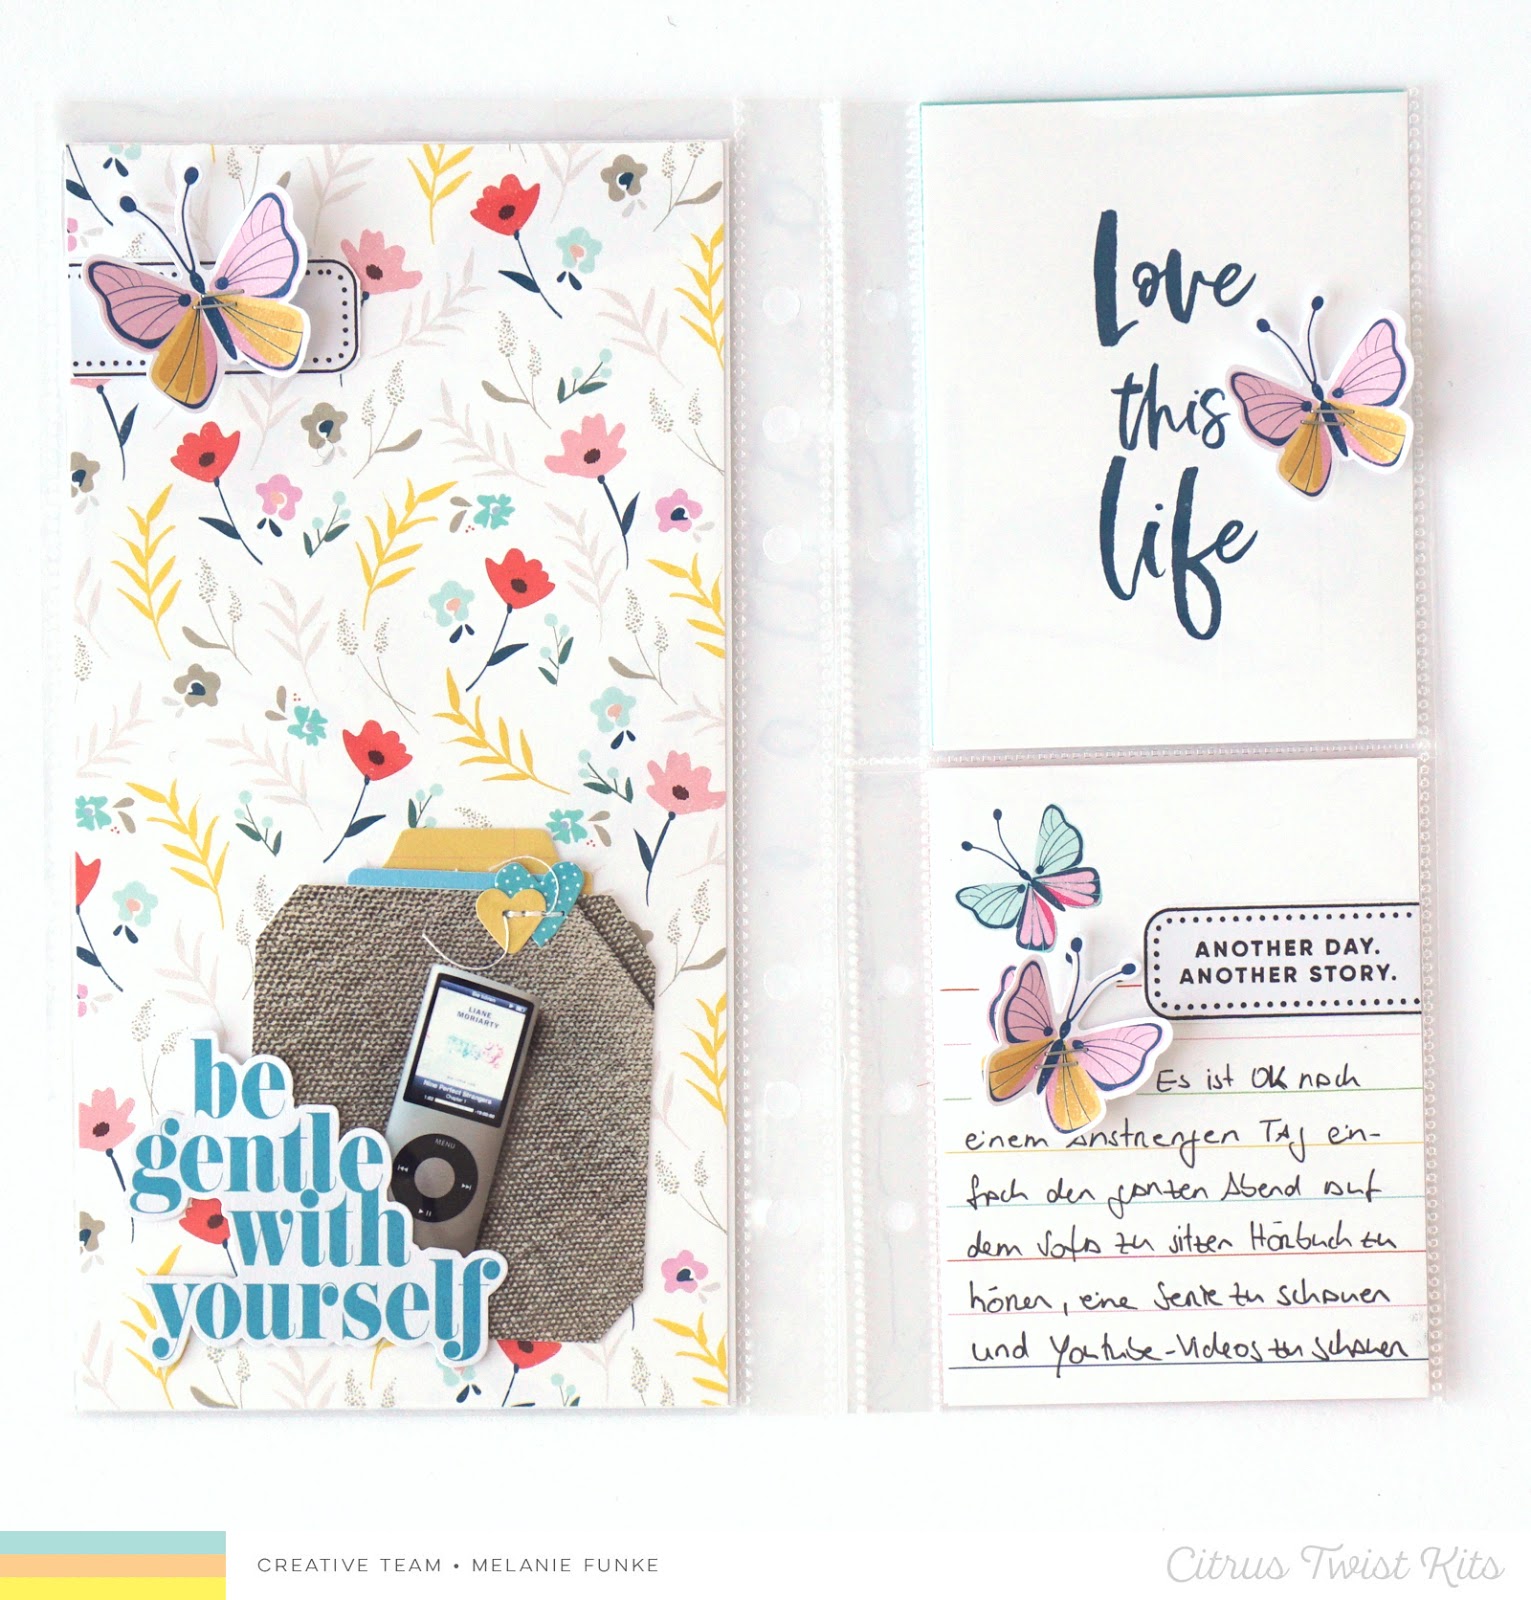 be
gentle
with
yourself
LIANE
MORIARTY
Nine Perfect Strangers
Chapter 1
MENU
Love
this
life
ANOTHER DAY.
ANOTHER STORY.
Es ist OK nach
einem anstrengen TAg ein-
fach den ganzen Abend auf
dem Sofa zu sitzen Hörbuch zu
hören, eine Serie zu schauen
und Youtube-Videos zu schauen
CREATIVE TEAM • MELANIE FUNKE
Citrus Twist Kits